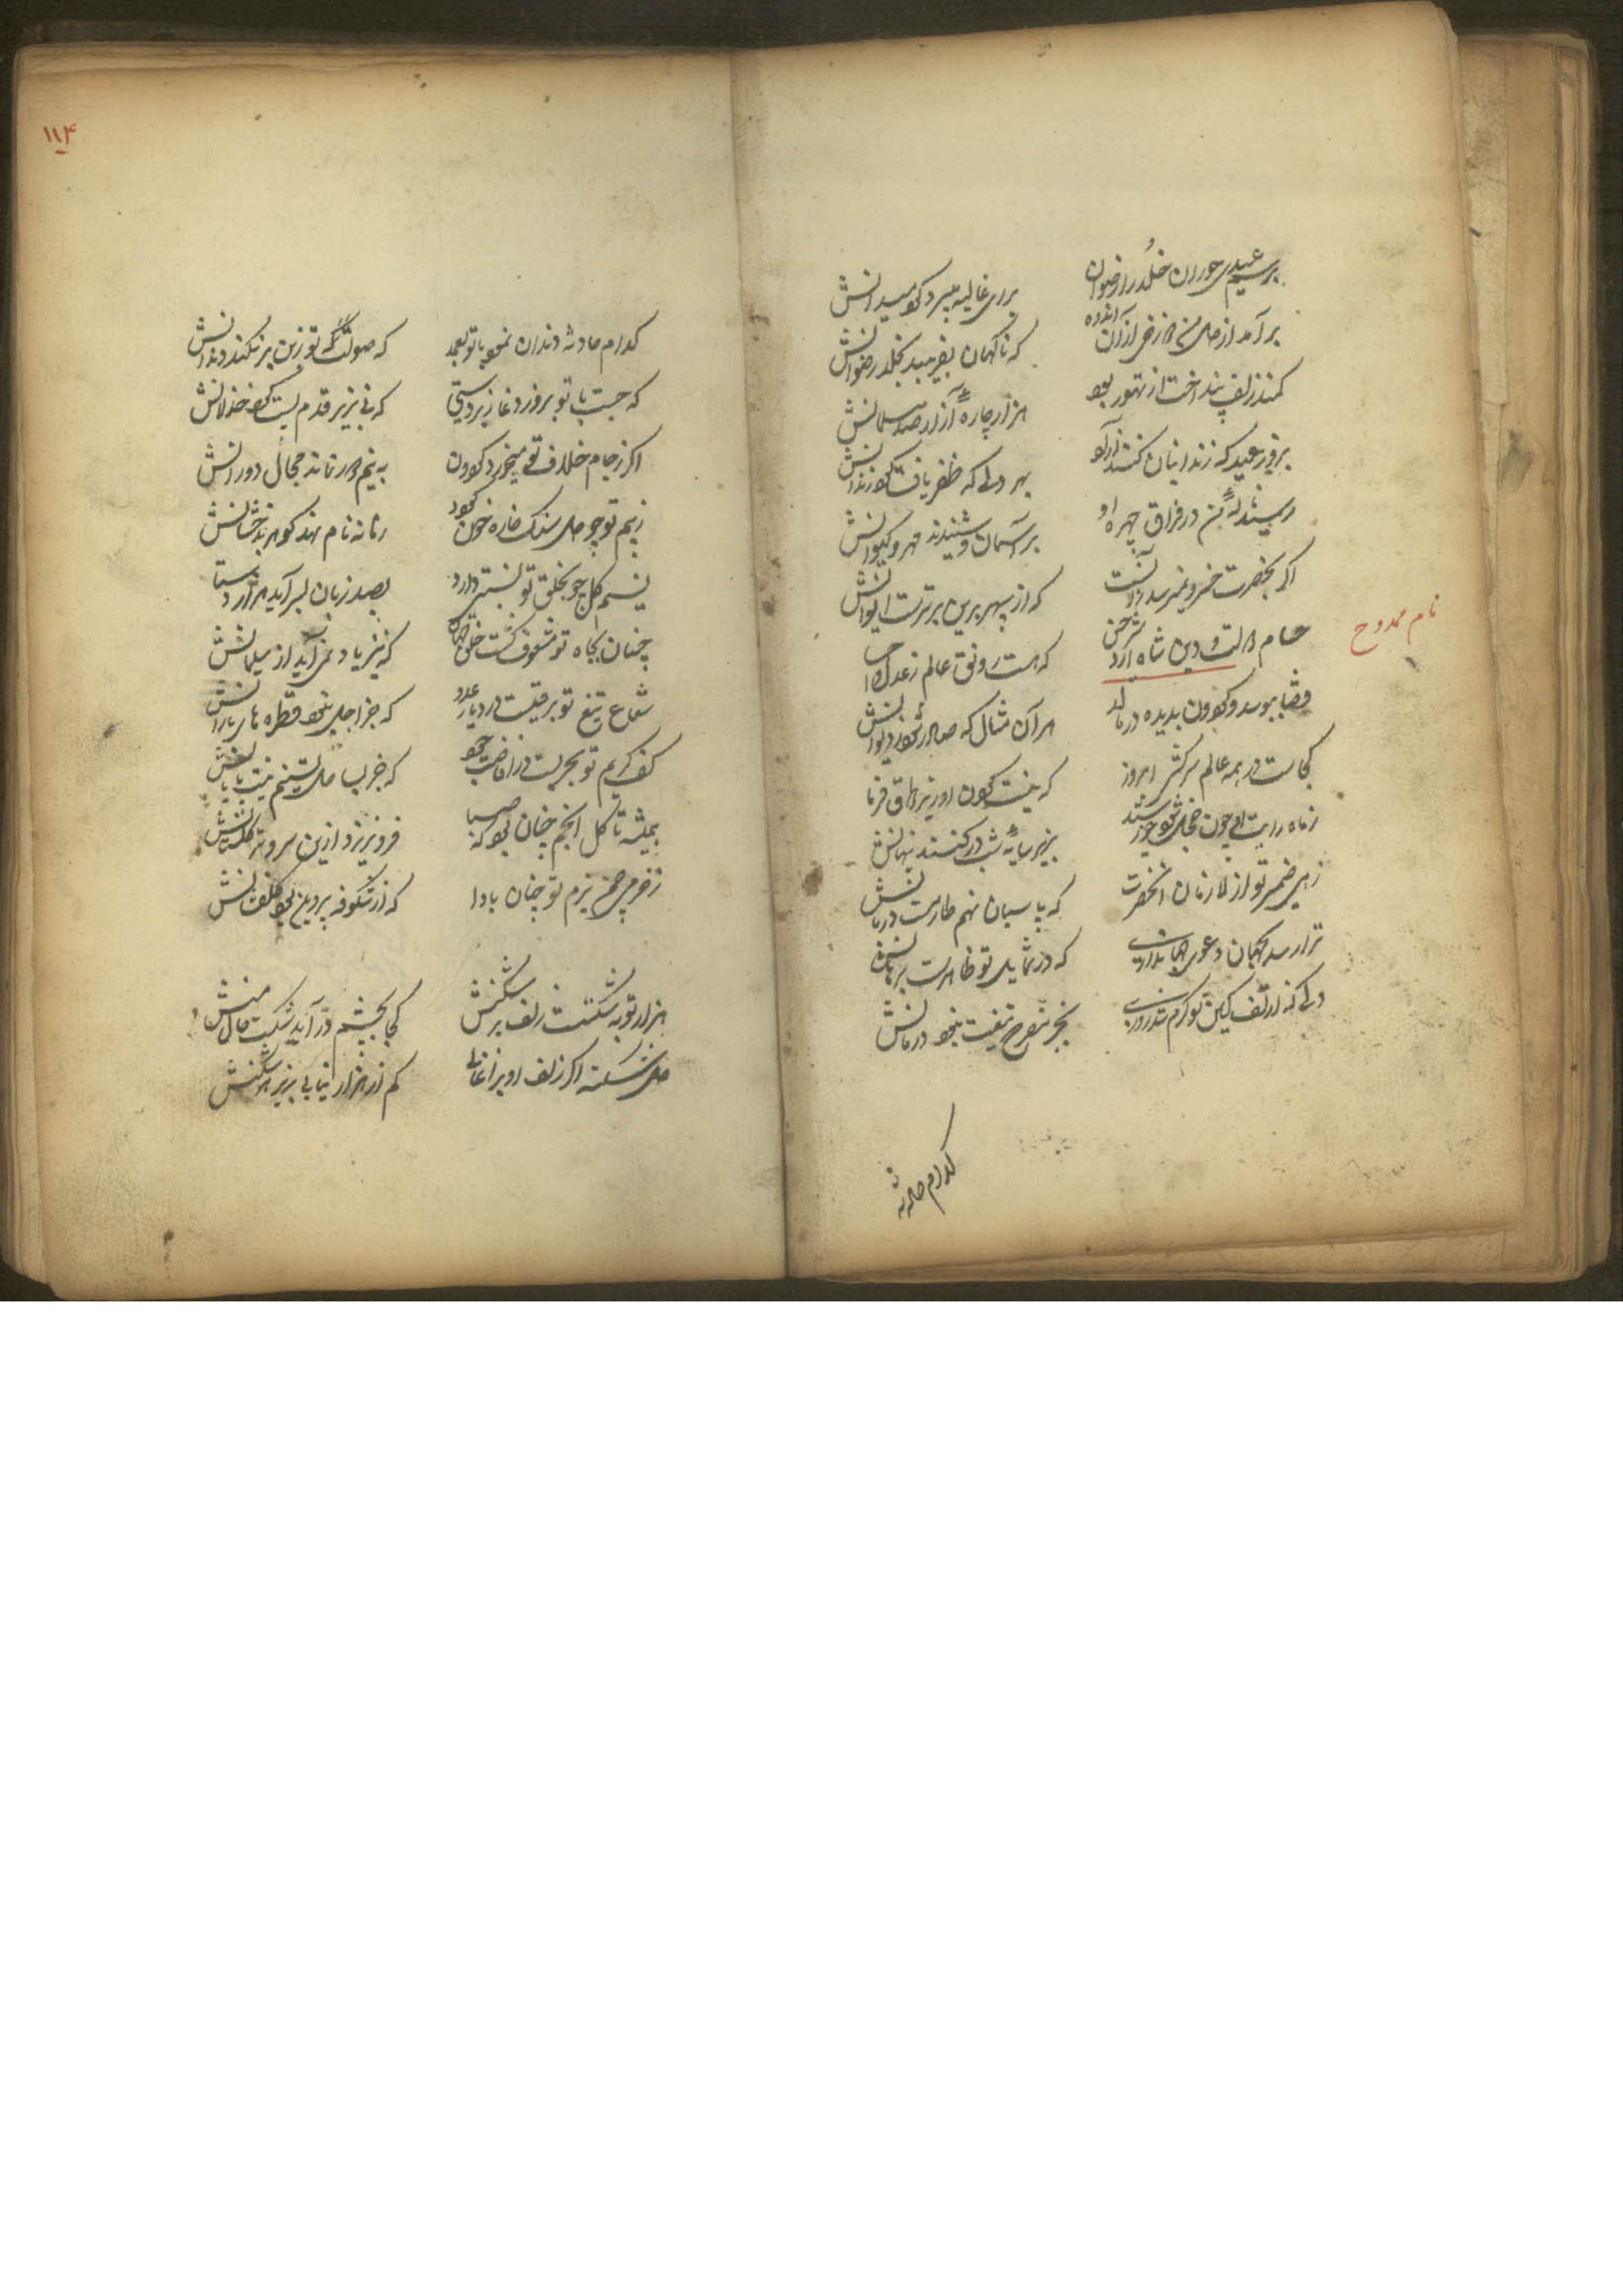 برسم عیدی حوران خلد را رضوان
برای غالیه میبرد کوی میدانش
برآمد از دل من
که ناگهان بفریبد بخلد رضوانش
کمند زلف بینداخت از تهور بود
هزار چاره آزار صد مسلمانش
بروز عید که زندانیان کنند آزاد
بهر دلی که ظفر یافت کرد زندانش
رسید ناله من در فراق چهره او
بر آسمان و شنیدند مهر و کیوانش
اگر بحضرت خسرو نمیرسد آنست
که از سپهر برین برترست ایوانش
حسام دولت و دین شاه اردشیر حسن
که هست رونق عالم ز عدل و احسانش
نام ممدوح
قضا ببوسد و گردون بدیده در مالد
هر آن مثال که صادر شود ز دیوانش
کجاست در همه عالم سرکشی امروز
که نیست گردن او زیر طوق فرمانش
ز ماه رایت او چون خجل شود خورشید
بزیر سایه شب در کنند پنهانش
زهی ضمیر تو از لازمان آنحضرت
که پاسبان نهم طارمست دربانش
ترا رسد بجهان دعوی جهانداری
که در شمایل تو ظاهرست برهانش
دلی که از تف کین تو گرم شد روزی
بجز مفرح تیغت نبود درمانش
کدام حادثه
۱۱۴
کدام حادثه دندان نمود با تو بعمد
که صولت تو ز بن بر نکند دندانش
که جست با تو بروز دغا زبردستی
که نی بزیر قدم پست کرد خذلانش
اگر ز جام خلاف تو میخورد گردون
به نیم دور نماند مجال دورانش
ز بیم تو چو دل سنگ خاره خون گردد
زمانه نام نهد گوهر بدخشانش
نسیم گل چو بخلق تو نسبتی دارد
بصد زبان بسرآید هزار دستانش
چنان بجاه تو مشعوف گشت خلق جهان
که نیز یاد نمی آید از سلیمانش
شعاع تیغ تو برقیست در دیار عدو
که جز اجل نبود قطره های بارانش
کف کریم تو بحریست در افاضت جود
که جز بساحل تسنیم نیست پایانش
همیشه تا گل انجم چنان بود که صبا
فرو نریزد ازین سروتر گلستانش
ز خرمی چمن بزم تو چنان بادا
که از شکوفه پروین بود گلفشانش
هزار توبه شکستست زلف پر شکنش
کجا بچشم در آید شکست حال منش
دل شکسته اگر زلف او برافشانی
کم از هزار نیابی بزیر هر شکنش